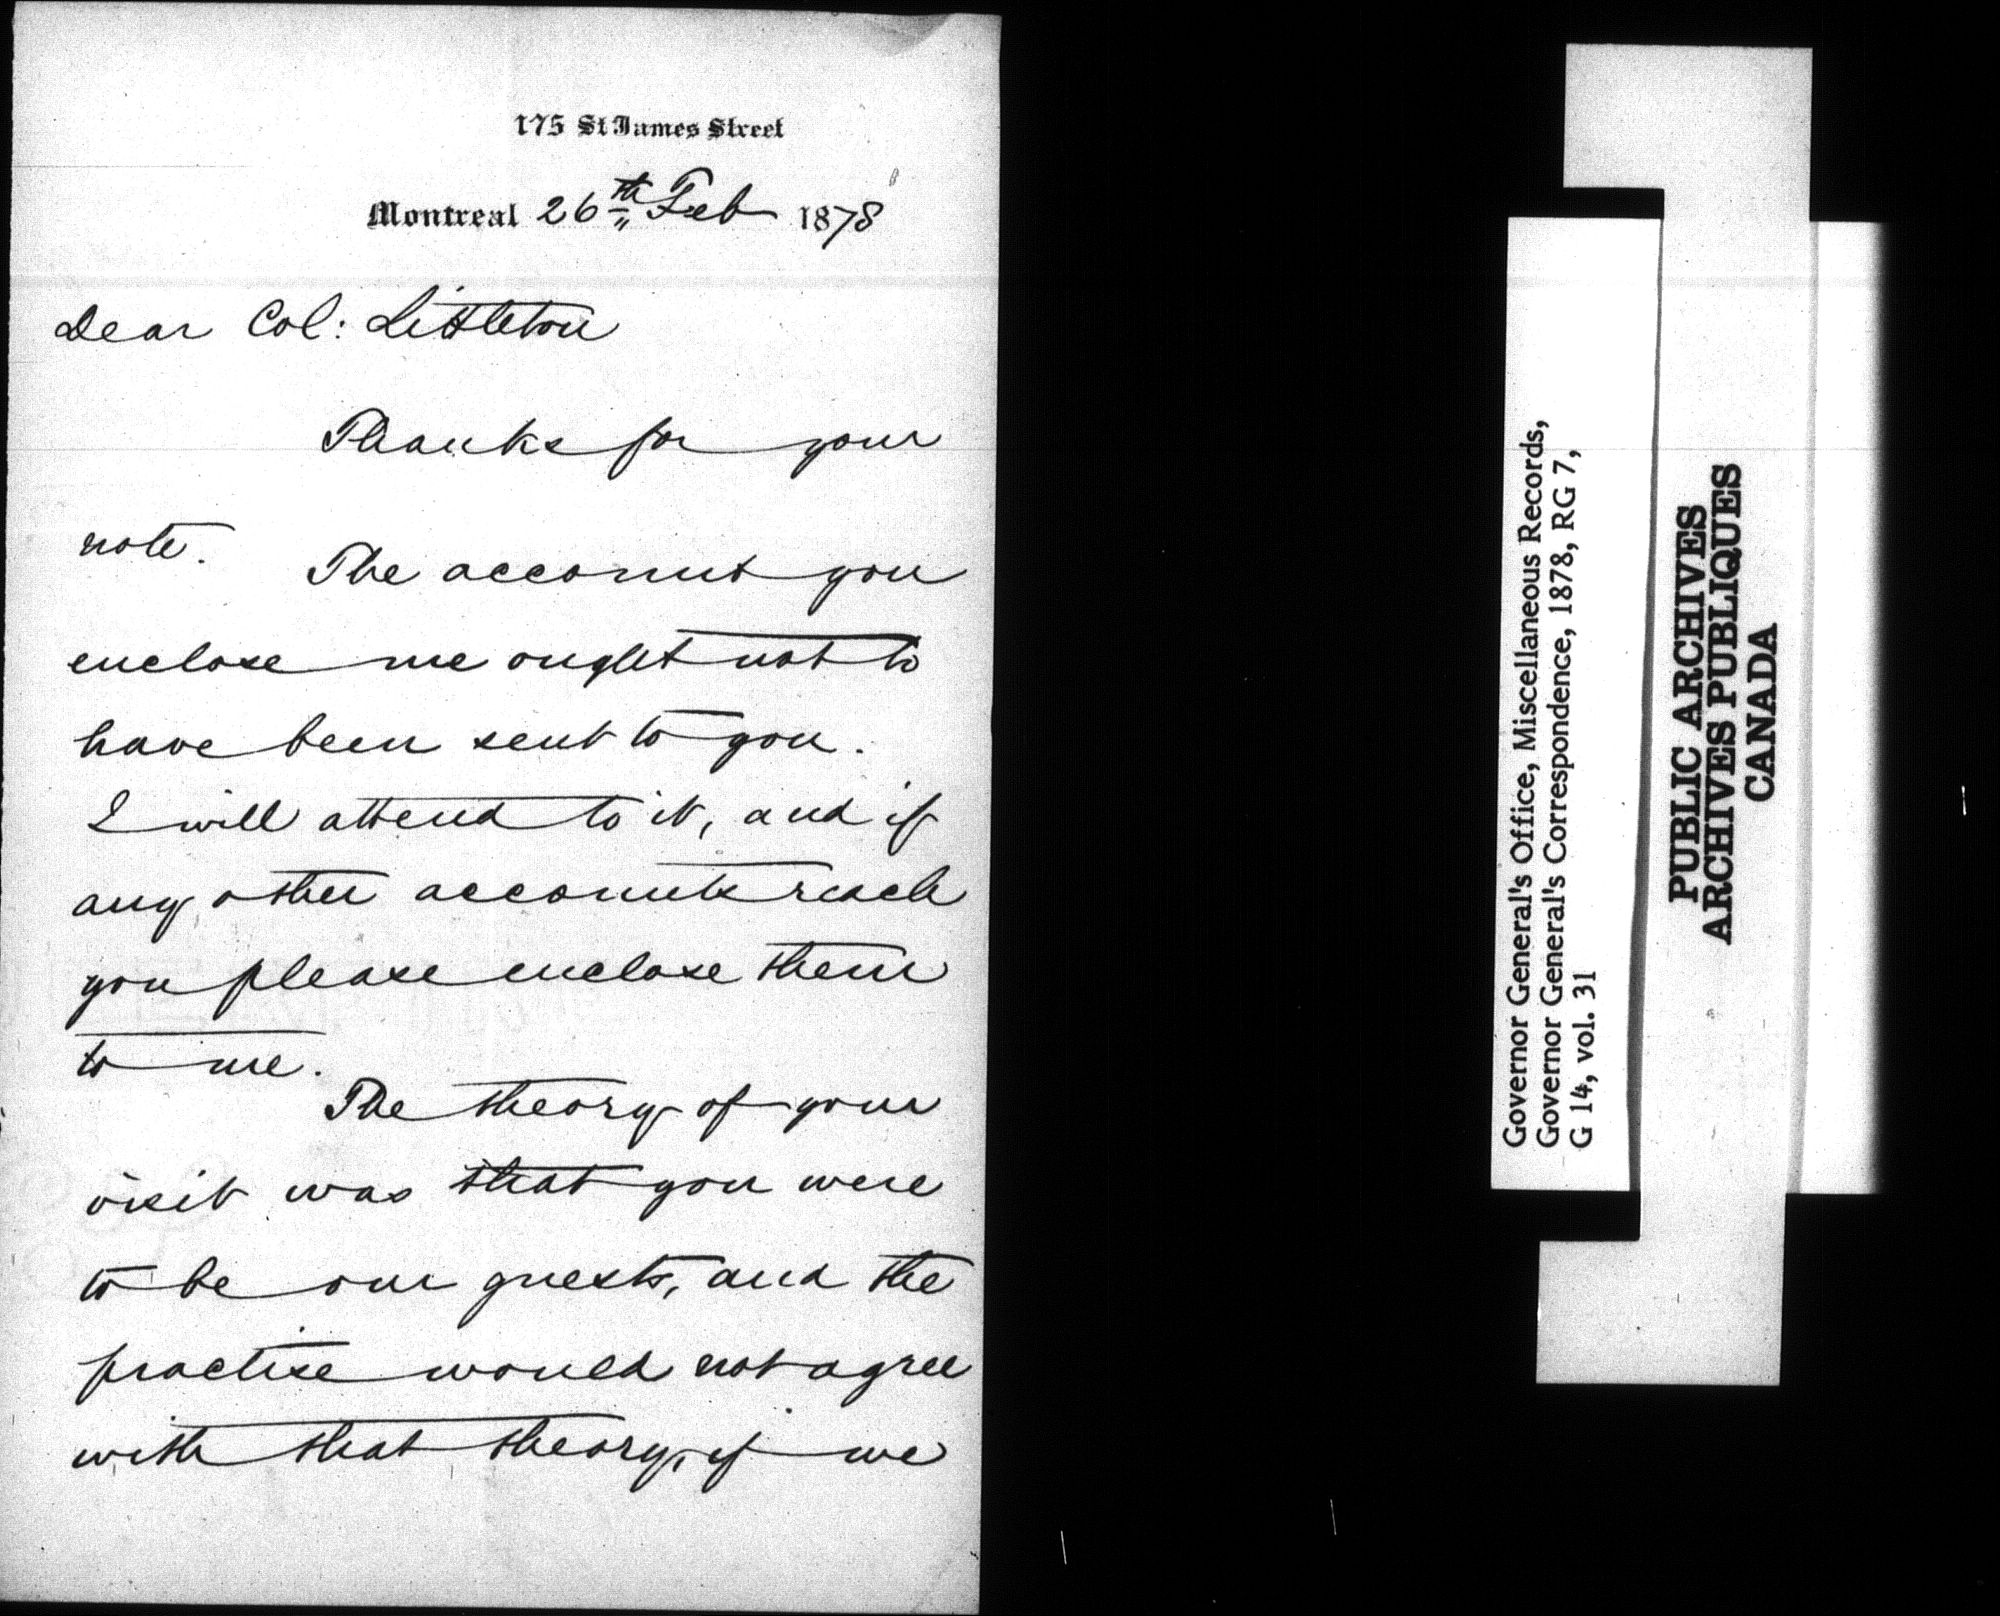 175 St James Street
Montreal 26th Feb 1878
Dear Col: Littleton
Thanks for your
note.
The account you
enclose me ought not to
have been sent to you.
I will attend to it, and if
any other accounts reach
you please enclose them
to me.
The theory of your
visit was that you were
to be our guests, and the
practise would not agree
with that theory, if we
Governor General's Office, Miscellaneous Records,
Governor General's Correspondence, 1878, RG 7,
G 14, vol. 31
PUBLIC ARCHIVES
ARCHIVES PUBLIQUES
CANADA